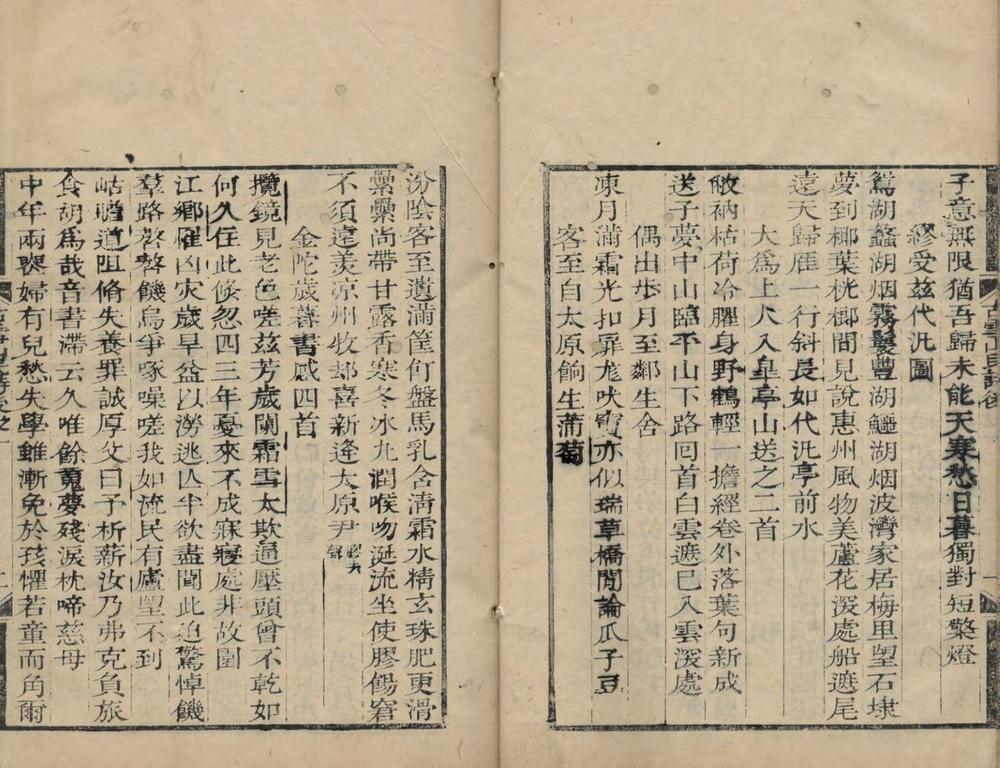 子意無限猶吾歸未能天寒愁日暮獨對短檠燈
繆受茲代氿圖
鴛湖蠡湖烟霧鬟豐湖鱷湖烟波灣家居梅里望石埭
夢到椰葉桄榔間見說惠州風物美蘆花深處船遮尾
遠天歸雁一行斜長如代氿亭前水
大為上人入皐亭山送之二首
敝衲枯荷冷臞身野鶴輕一擔經卷外落葉句新成
送子夢中山臨平山下路回首白雲遮已入雲深處
偶出步月至鄰生舍
凍月滿霜光扣扉尨吠竇亦似瑞草橋閒論瓜子豆
客至自太原餉生蒲萄
汾陰客至遺滿筐飣盤馬乳含淸霜水精玄珠肥更滑
纍纍尚帶甘露香寒冬冰丸潤喉吻涎流坐使膠餳窘
不須遠羨凉州牧却喜新逢太原尹
金陀歲暮書感四首
攬鏡見老色嗟茲芳歲闌霜雪太欺逼壓頭曾不乾如
何久住此倏忽四三年憂來不成寐寢處非故圉
江鄉罹凶灾歲旱益以澇逃亾半欲盡聞此迫驚悼饑
羣路嗸嗸饑烏爭啄噪嗟我如流民有廬望不到
岵瞻道阻脩失養罪誠厚父曰予析薪汝乃弗克負旅
食胡為哉音書滯云久唯餘䰟夢殘淚枕啼慈母
中年兩喪婦有兒愁失學雖漸免於孩懼若童而角爾